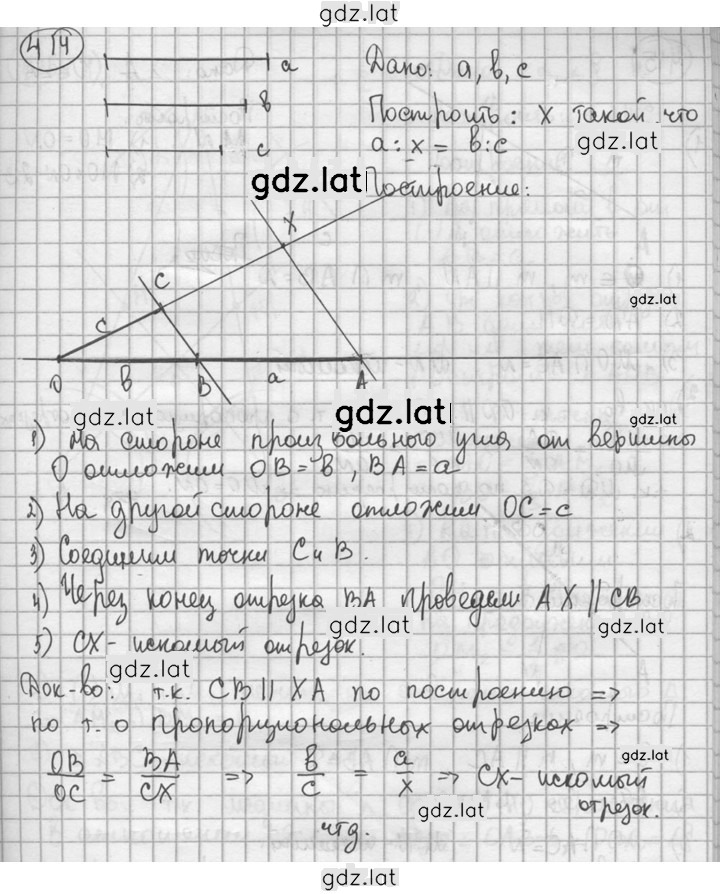 gdz.lat
414
a
Дано: a, b, c
b
Построить: X такой что
c
a : x = b : c
gdz.lat
gdz.lat
Построение:
X
C
gdz.lat
c
O b B a A
gdz.lat
gdz.lat
gdz.lat
1) На стороне произвольного угла от вершины
O отложим OB = b, BA = a
2) На другой стороне отложим OC = c
3) Соединим точки C и B.
4) Через конец отрезка BA проведем AX || CB
gdz.lat
gdz.lat
5) CX - искомый отрезок.
gdz.lat
Док-во: т.к. CB || XA по построению =>
по т. о пропорциональных отрезках =>
gdz.lat
OB/OC = BA/CX => b/c = a/x => CX - искомый
отрезок.
gdz.lat
чтд.
gdz.lat